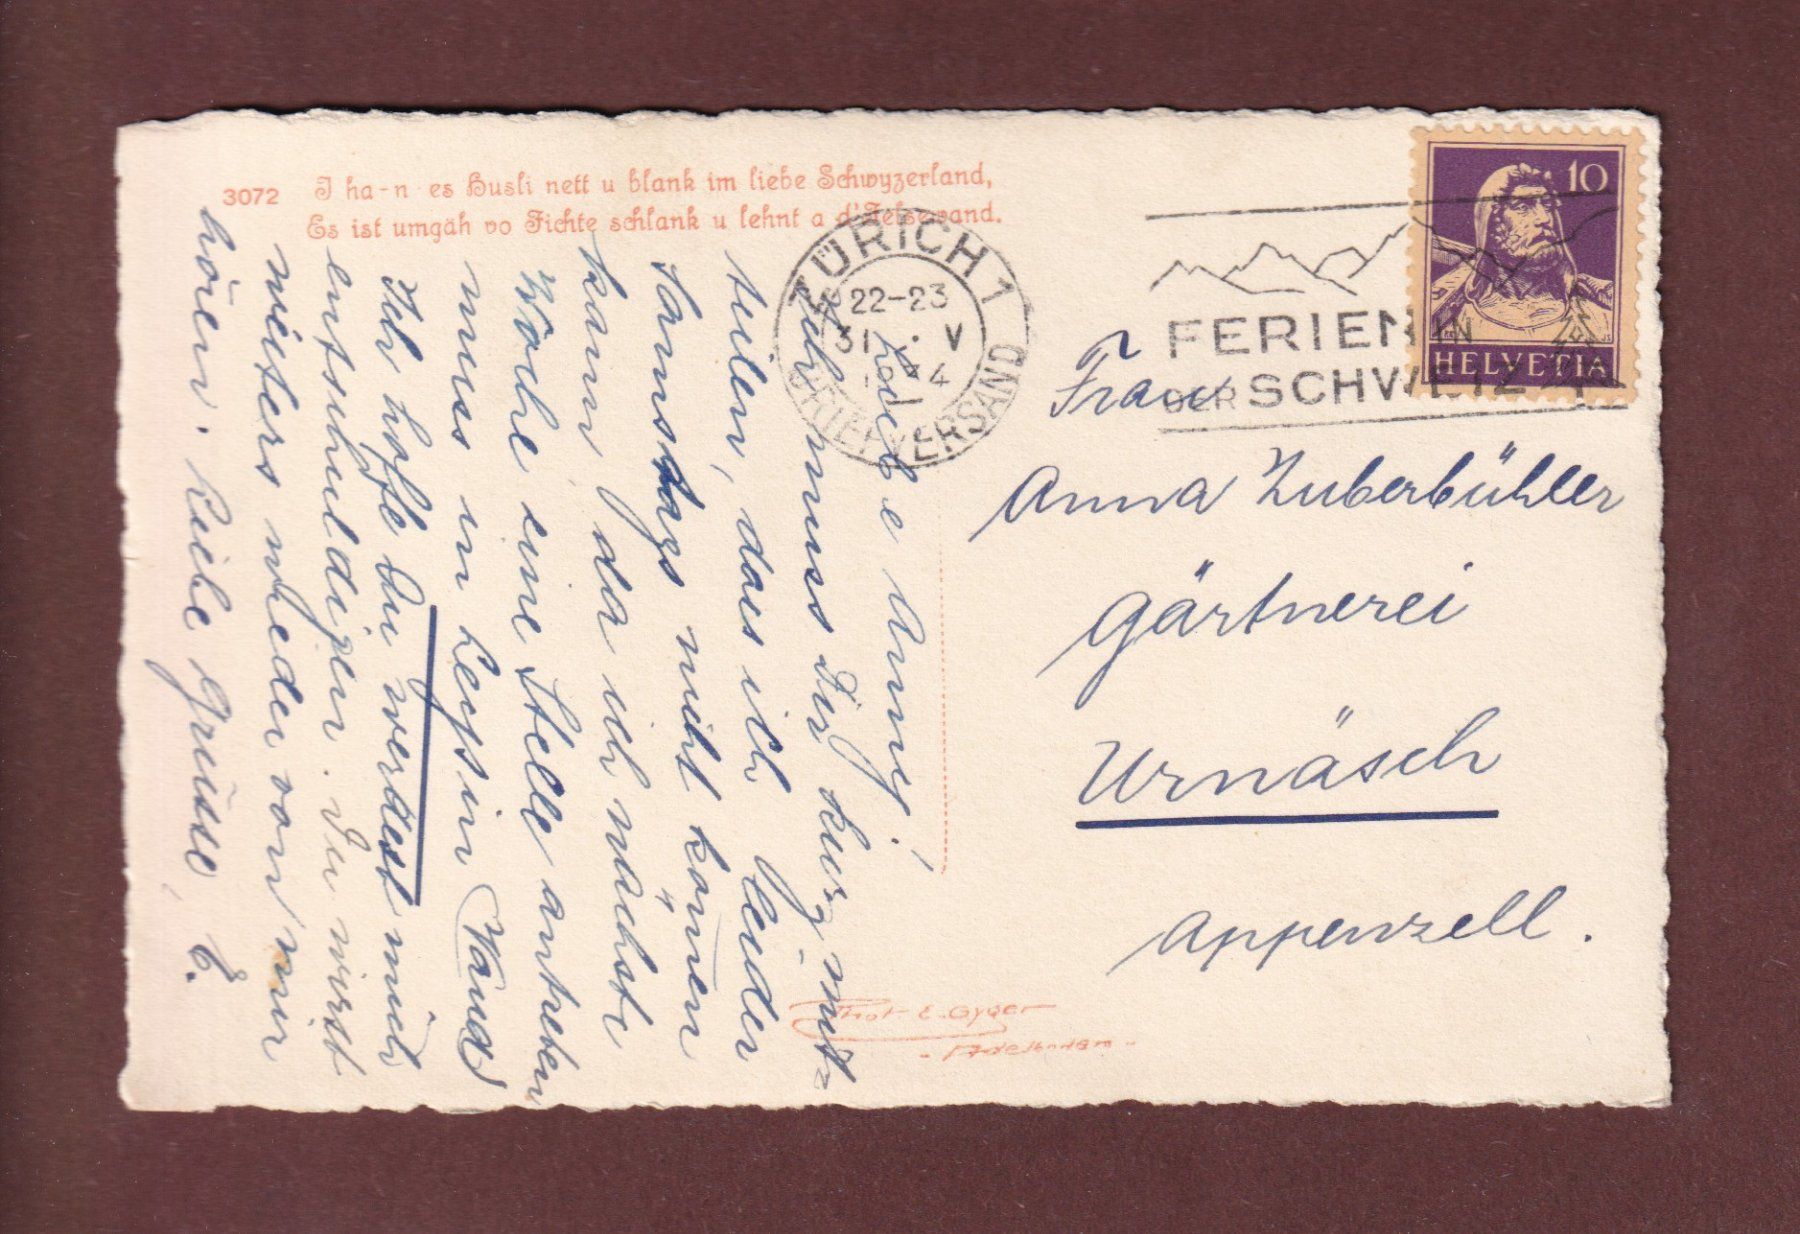 3072 I ha-n es Husli nett u blank im liebe Schwyzerland,
Es ist umgäh vo Fichte schlank u lehnt a d'Felsewand.
ZÜRICH 1
22-23
31. V
BRIEFVERSAND
FERIEN IN
DER SCHWEIZ
10
HELVETIA
Frau
Anna Zuberbühler
Gärtnerei
Urnäsch
Appenzell.
Liebe Anny!
Ich muss Dir kurz mit-
teilen, dass ich leider
Samstags nicht könen
kann, da ich nächste
Woche eine Stelle antreten
muss in Leysin (Waad)
Ich hoffe Du werdest mich
entschuldigen. Du wirst
weiters wieder von mir
hören. Liebe Grüsse, E.
Phot E. Gyger
- Adelboden -